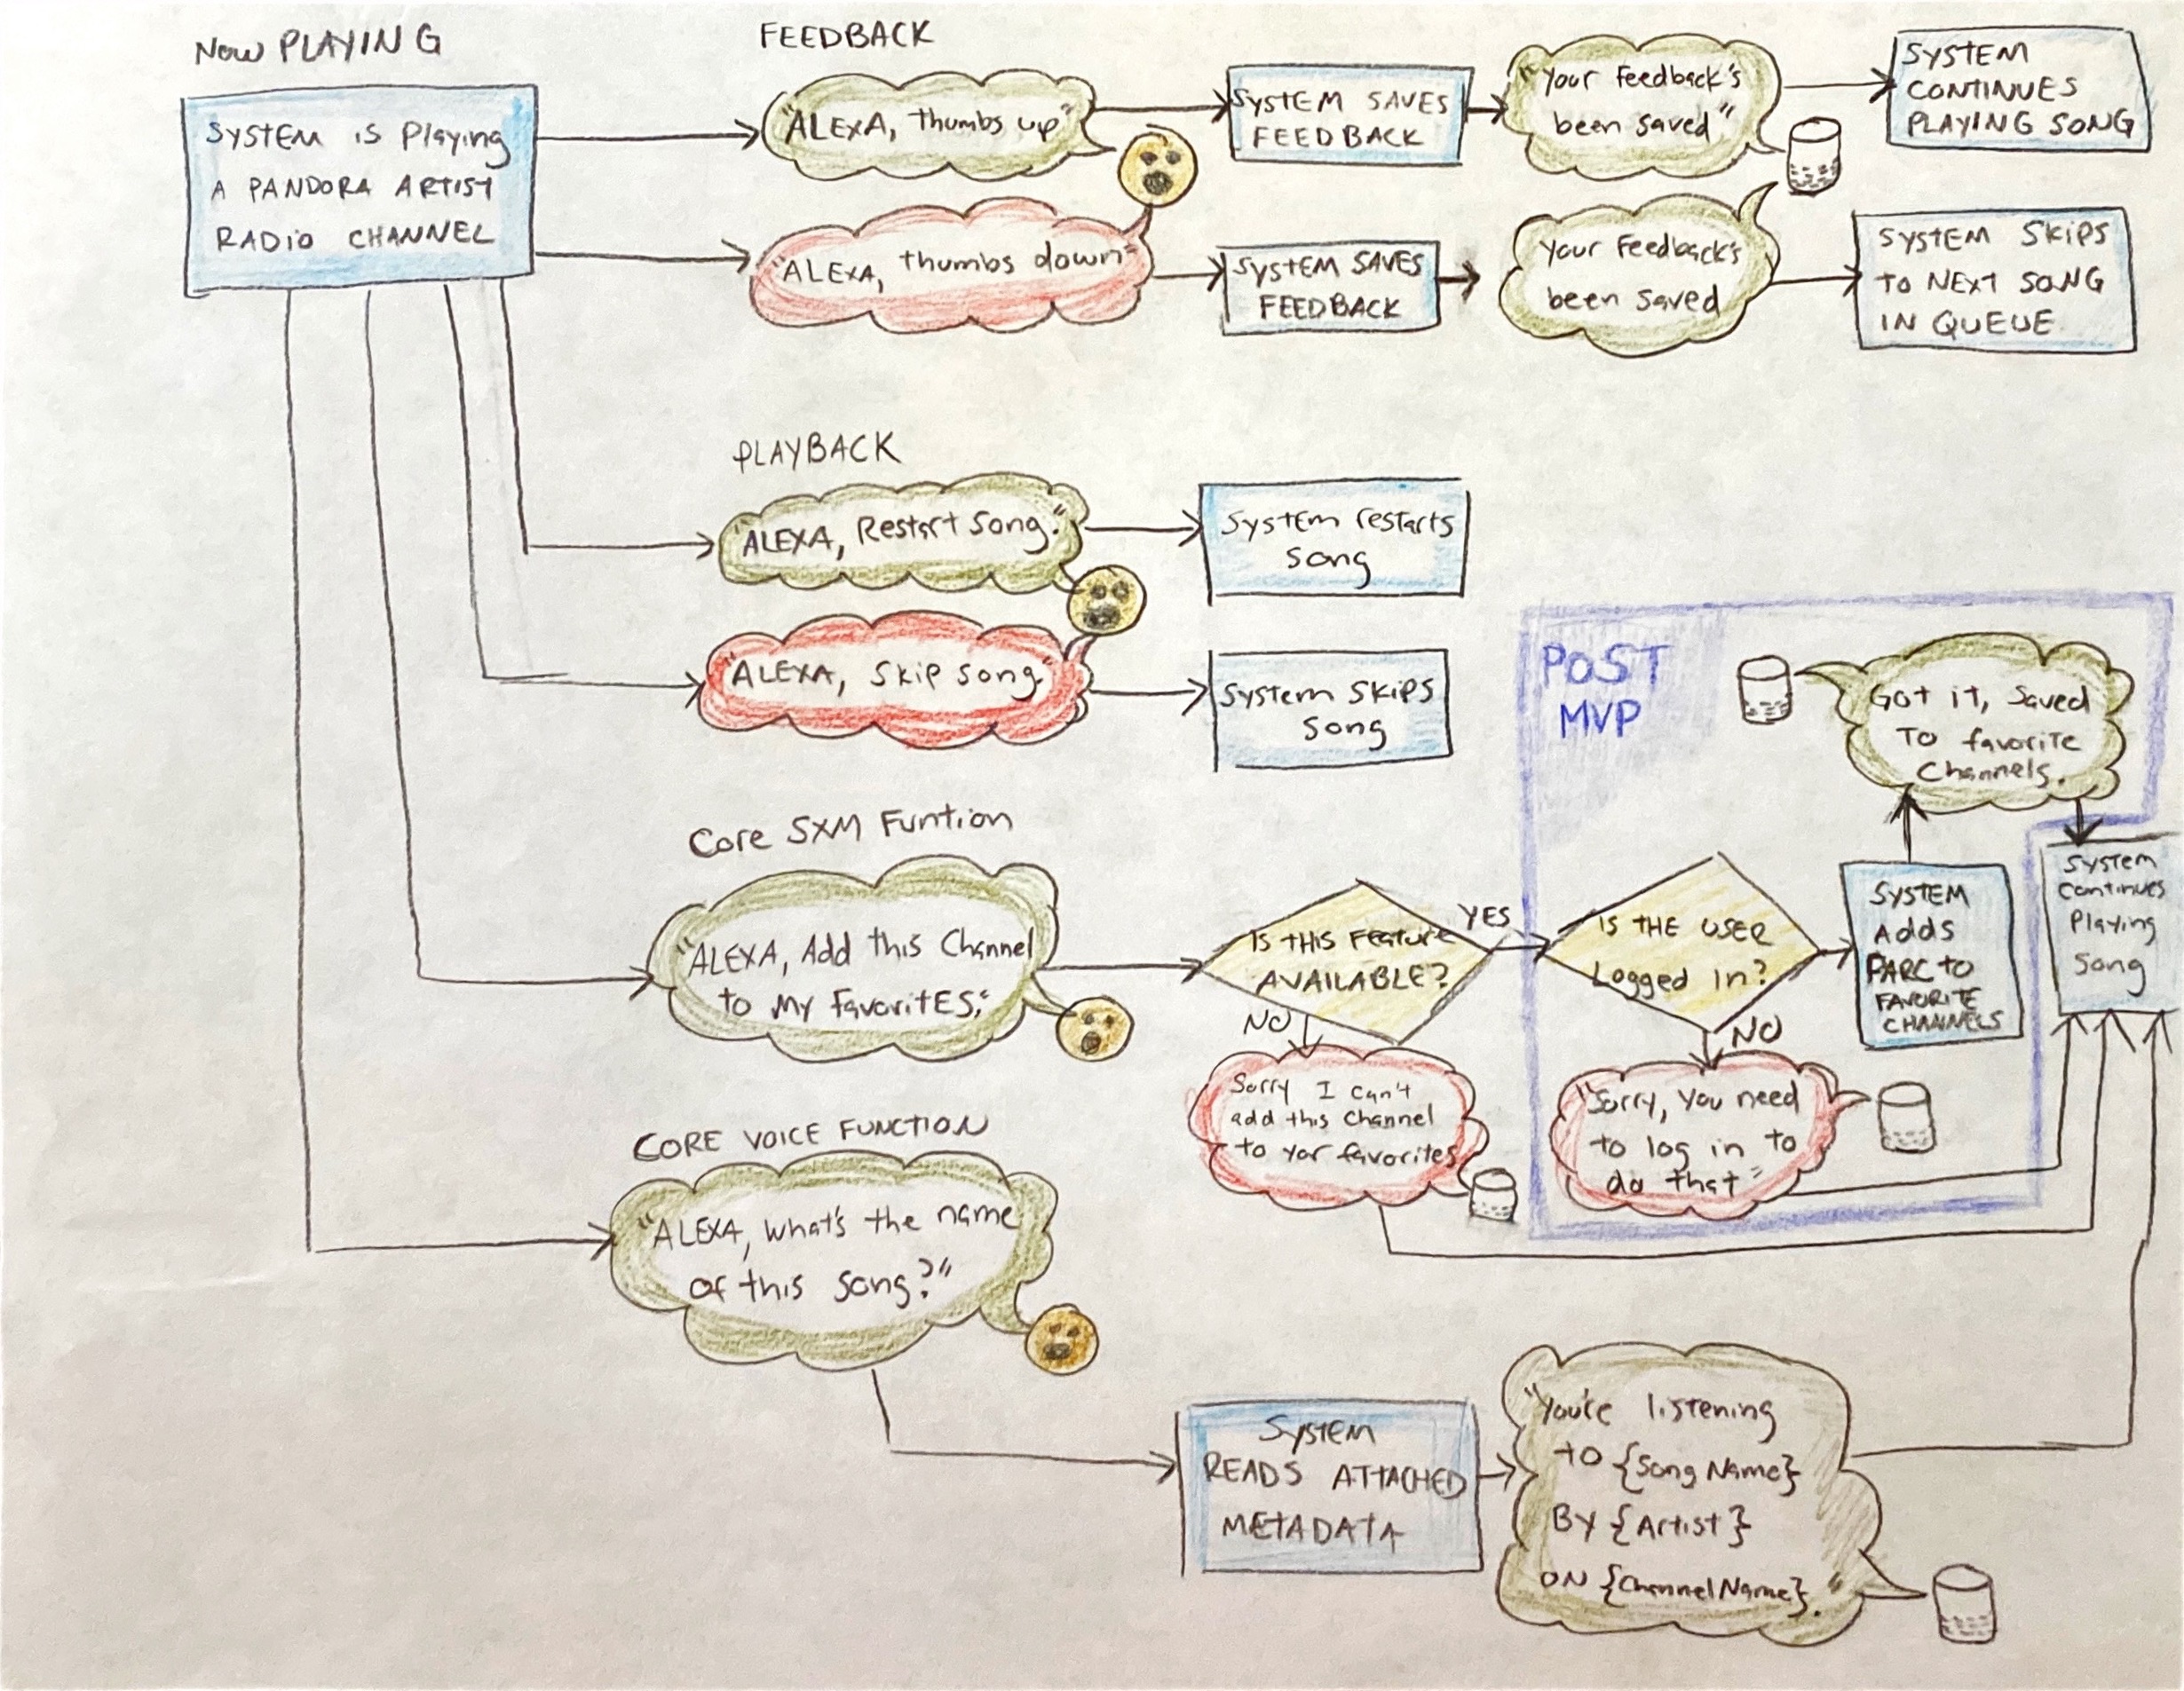 Now PLAYING
SYSTEM is Playing
A PANDORA ARTIST
RADIO CHANNEL
FEEDBACK
"ALEXA, thumbs up"
SYSTEM SAVES
FEEDBACK
"Your Feedback's
been saved"
SYSTEM
CONTINUES
PLAYING SONG
"ALEXA, thumbs down"
SYSTEM SAVES
FEEDBACK
Your Feedback's
been saved
SYSTEM SKIPS
TO NEXT SONG
IN QUEUE
PLAYBACK
"ALEXA, Restart Song."
System restarts
Song
"ALEXA, Skip Song"
System Skips
Song
Core SXM Funtion
"ALEXA, Add this Channel
to My favoritES."
IS THIS FEATURE
AVAILABLE?
YES
NO
Sorry I can't
add this Channel
to yor favorites
POST
MVP
IS THE USER
Logged In?
NO
"Sorry, you need
to log in to
do that"
SYSTEM
Adds
PARC to
FAVORITE
CHANNELS
Got it, Saved
To favorite
Channels.
System
Continues
Playing
Song
CORE VOICE FUNCTION
"ALEXA, what's the name
of this song?"
SYSTEM
READS ATTACHED
METADATA
"You're listening
TO {Song Name}
BY {Artist}
ON {Channel Name}."